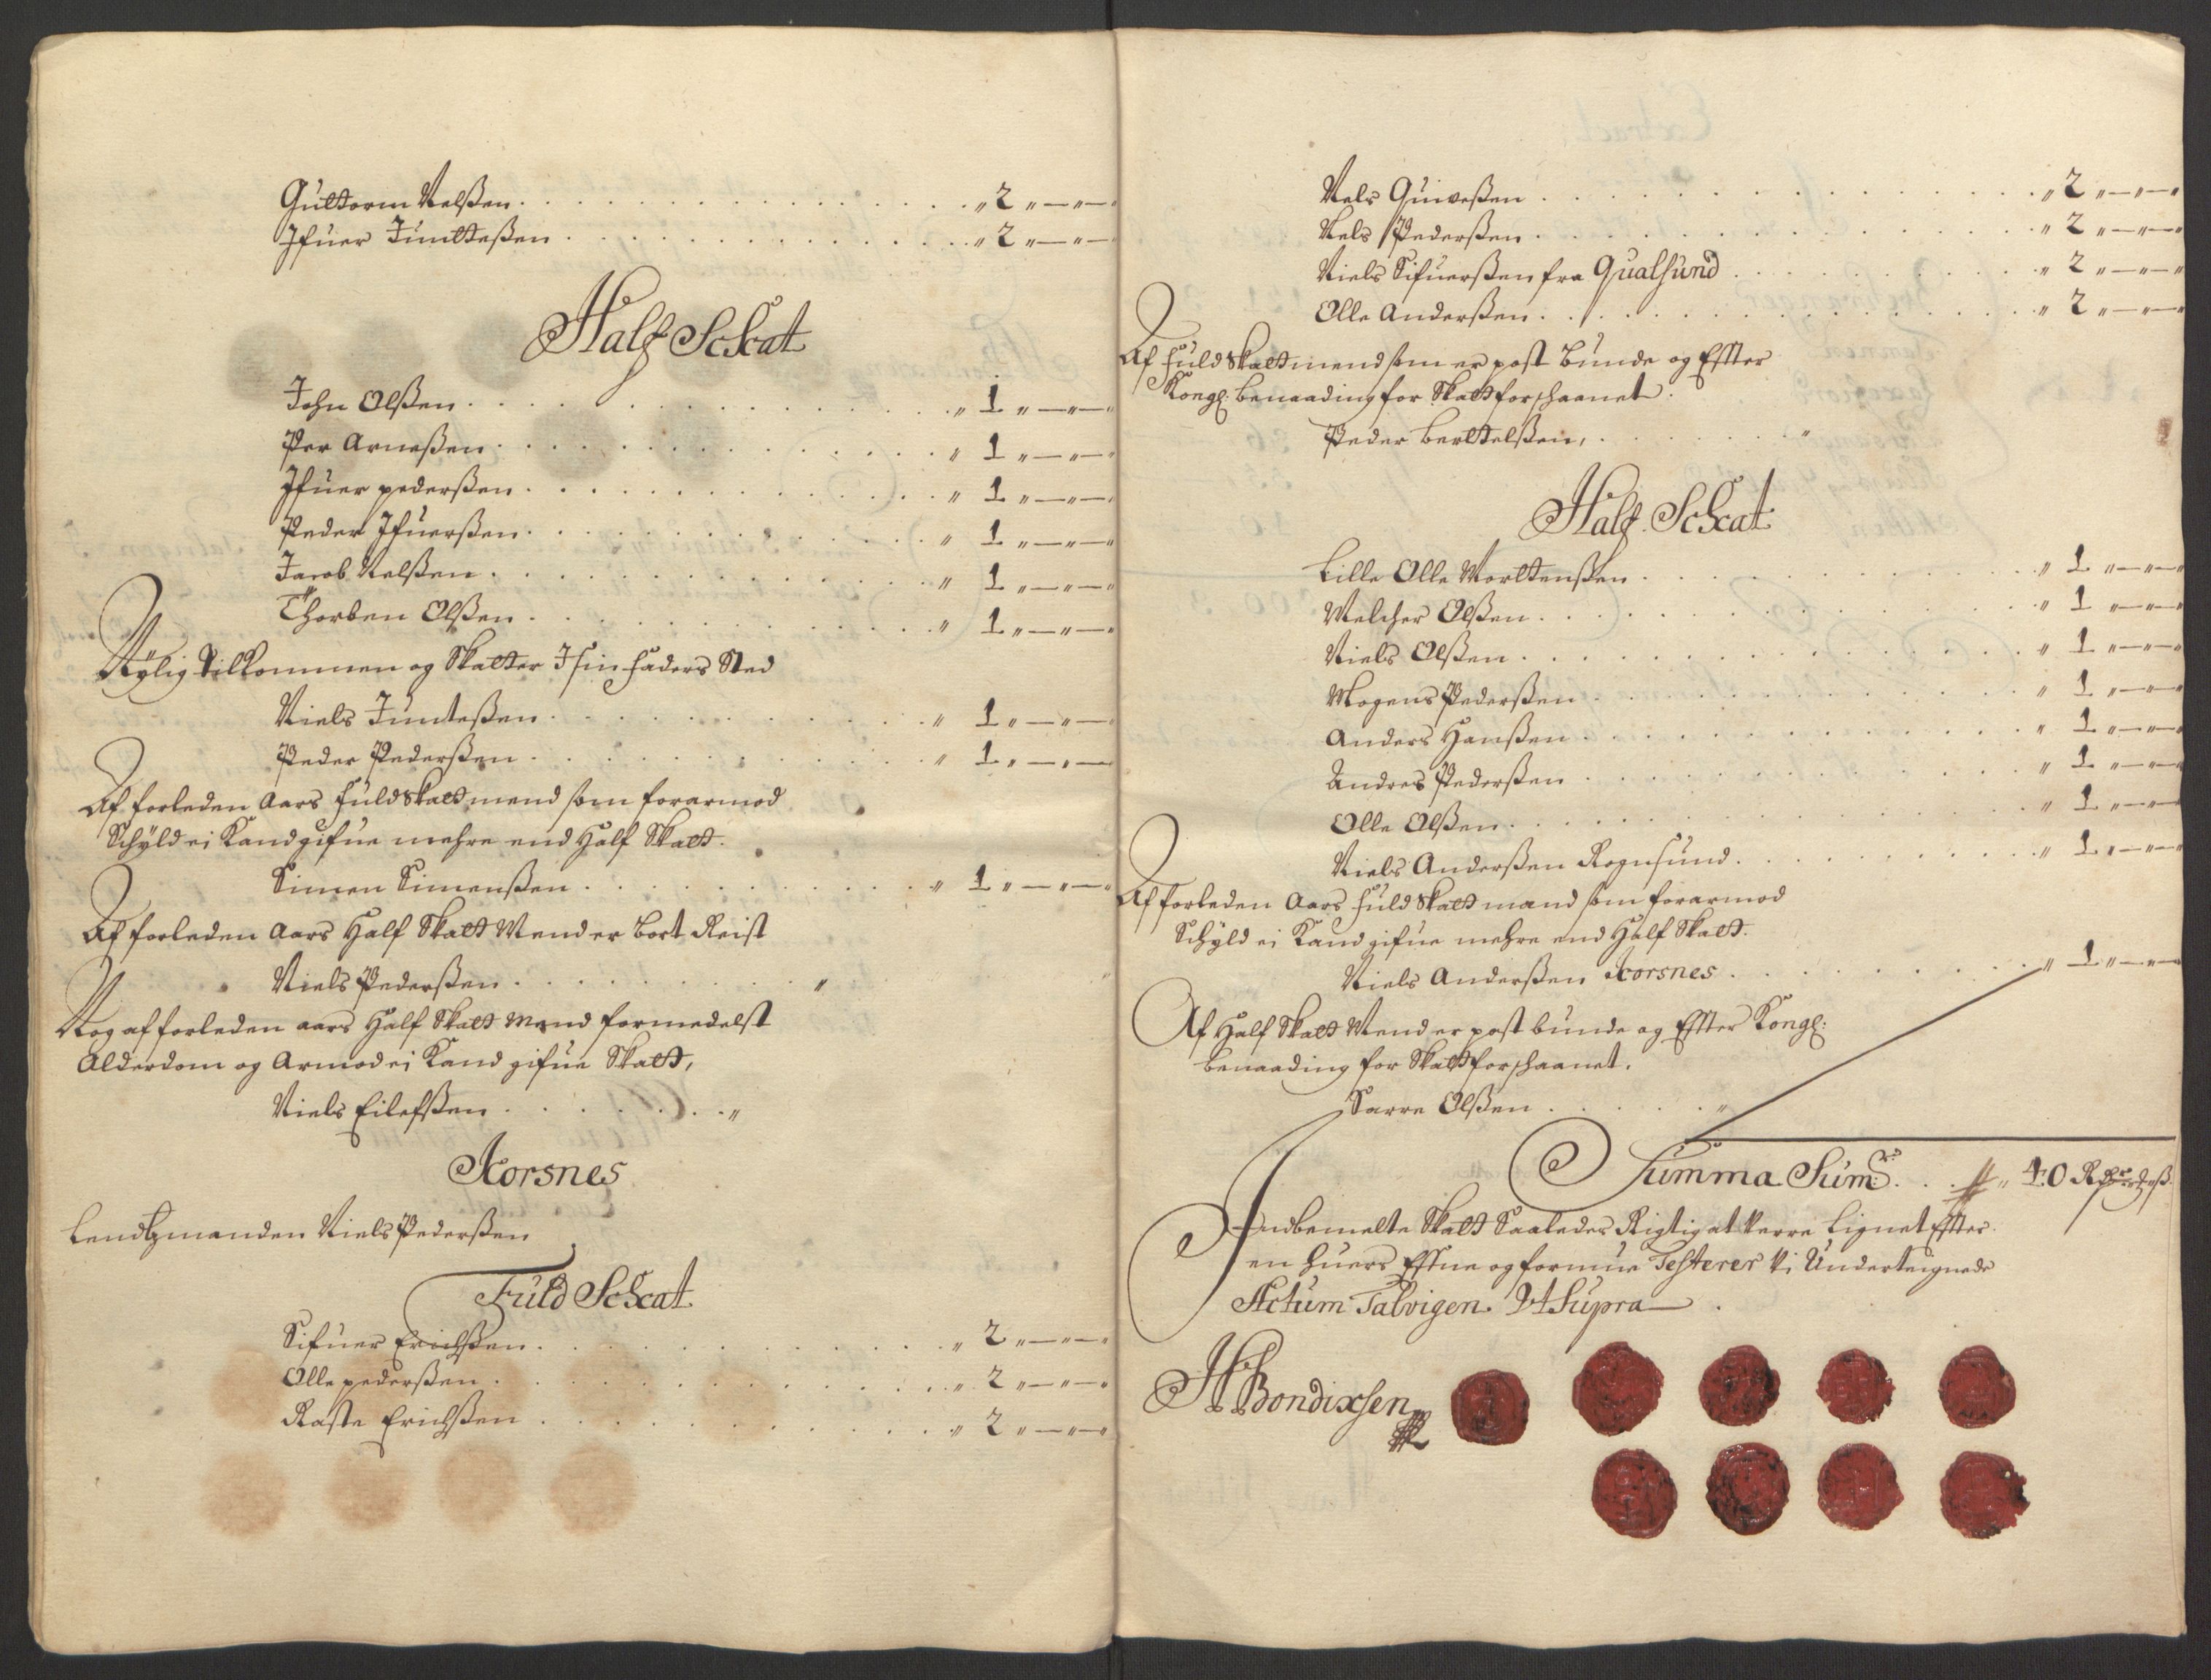 Guttorm Nelßen . . . „ 2 „ — „ —
Ifuer Juntteßen . . . „ 2 „ — „ —
Half Schat
John Olßen . . . „ 1 „ — „ —
Per Arneßen . . . „ 1 „ — „ —
Ifuer pederßen . . . „ 1 „ — „ —
Peder Ifuerßen . . . „ 1 „ — „ —
Jacob Nelßen . . . „ 1 „ — „ —
Thorben Olßen . . . „ 1 „ — „ —
Nylig Tilkommen og Skatter I sin faders Sted
Niels Junteßen . . . „ 1 „ — „ —
Peder Pederßen . . . „ 1 „ — „ —
Af forleden Aars fuld Skatt mend som for armod
Schyld ei Kand gifue mehre end Half Skatt.
Simen Simenßen . . . „ 1 „ — „ —
Af forleden Aars Half Skatt Mend er bort Reist
Niels Pederßen . . . „
Nog af forleden aars Half Skatt Mend formedelst
Alderdom og Armod ei Kand gifue Skatt,
Niels Eilefßen . . . „
Korsnes
Lendtzmanden Niels Pederßen
Fuld Schat
Sifuer Erichßen . . . „ 2 „ — „ —
Olle pederßen . . . „ 2 „ — „ —
Raste Erichßen . . . „ 2 „ — „ —
Nels Quiveßen . . . „ 2 „ — „ —
Nels Pederßen . . . „ 2 „ — „ —
Niels Sifuerßen fra Qualsund . . . „ 2 „ — „ —
Olle Anderßen . . . „ 2 „ — „ —
Af fuld Skatt mend som er post bunde og Effter
Kongl: benaading for Skatt forschaanet.
Peder Berttelßen, . . . „
Half Schat
Lille Olle Morttenßen . . . „ 1 „ — „ —
Melcher Olßen . . . „ 1 „ — „ —
Niels Olßen . . . „ 1 „ — „ —
Mogens Pederßen . . . „ 1 „ — „ —
Anders Hanßen . . . „ 1 „ — „ —
Andres Pederßen . . . „ 1 „ — „ —
Olle Olßen . . . „ 1 „ — „ —
Niels Anderßen Rognsund . . . „ 1 „ — „ —
Af forleden Aars fuld Skatt mand som for armod
Schyld ei Kand gifue mehre end Half Skatt.
Niels Anderßen Korsnes . . . „ 1 „ — „ —
Af Half Skatt Mend er post bunde og Effter Kongl:
benaading for Skatt forschaanet.
Sarre Olßen . . . „
Summa Sum: . . . „ 40
Indbemelte Skatt Saaledes Rigtig at Verre Lignet Effter
en huers Effne og formue Testerer Vi Underteignede
Actum Talvigen. Vt Supra
H Bondixsen